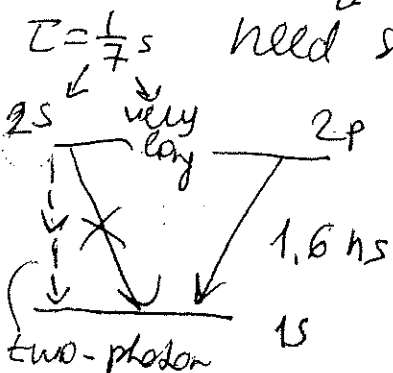 τ = 1/7 s need s
2S very long 2p
1,6 ns
1S
two-photon